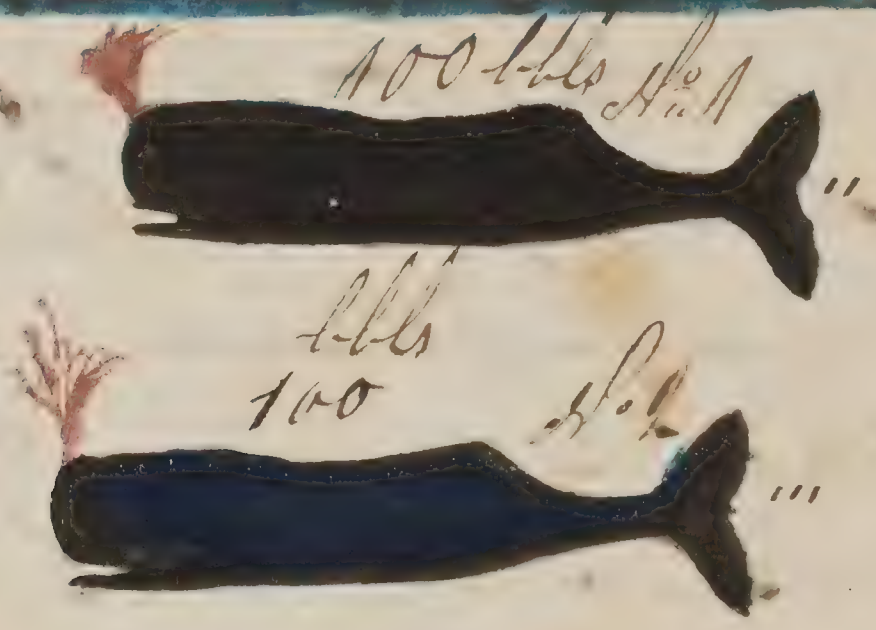 100 bbls No 1
"
bbls
100 No 2
"'